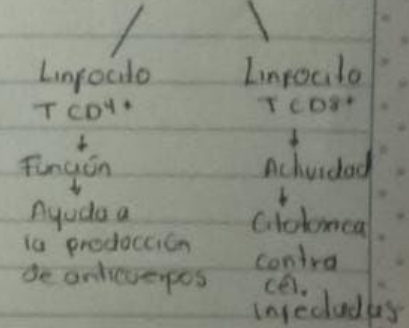 Linfocito
T CD4+
Función
Ayuda a
la producción
de anticuerpos
Linfocito
T CD8+
Actividad
Citotoxica
contra
cél.
infectadas